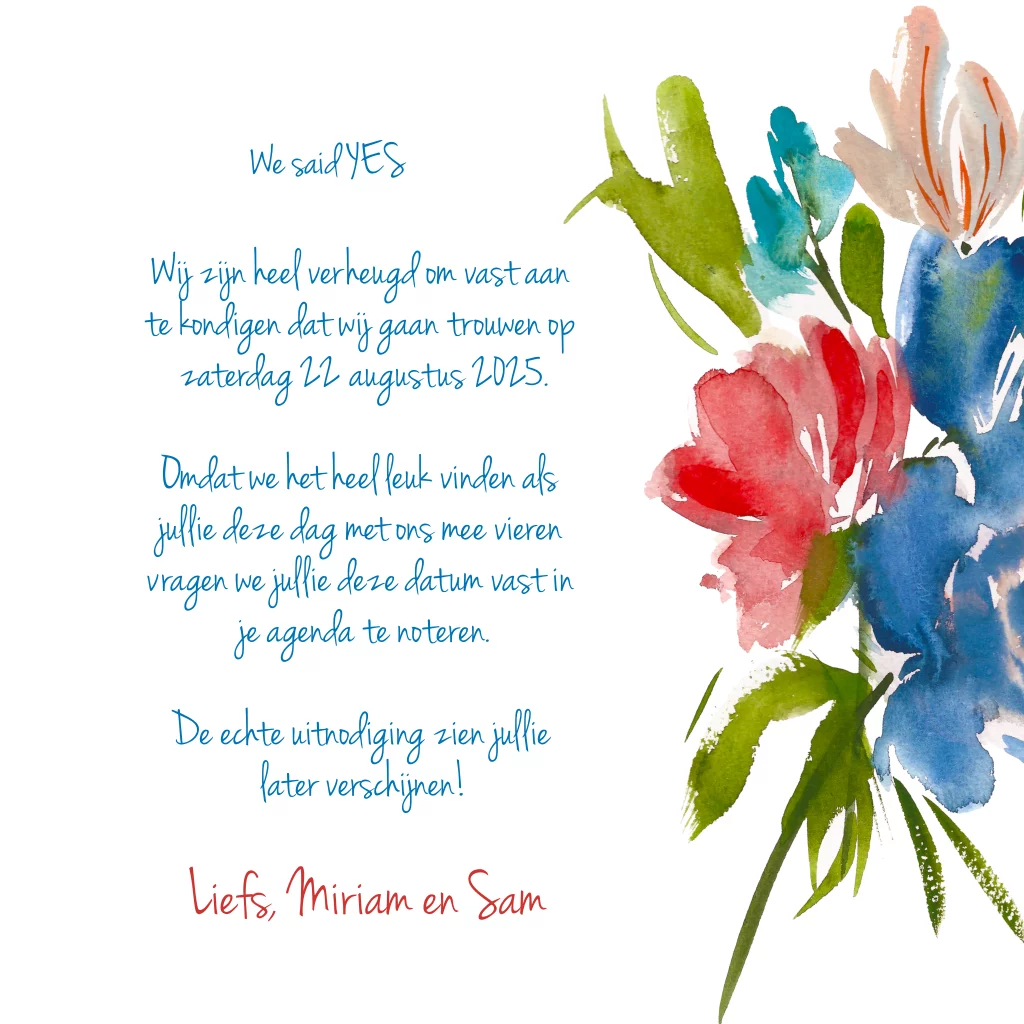 We said YES
Wij zijn heel verheugd om vast aan
te kondigen dat wij gaan trouwen op
zaterdag 22 augustus 2025.
Omdat we het heel leuk vinden als
jullie deze dag met ons mee vieren
vragen we jullie deze datum vast in
je agenda te noteren.
De echte uitnodiging zien jullie
later verschijnen!
Liefs, Miriam en Sam